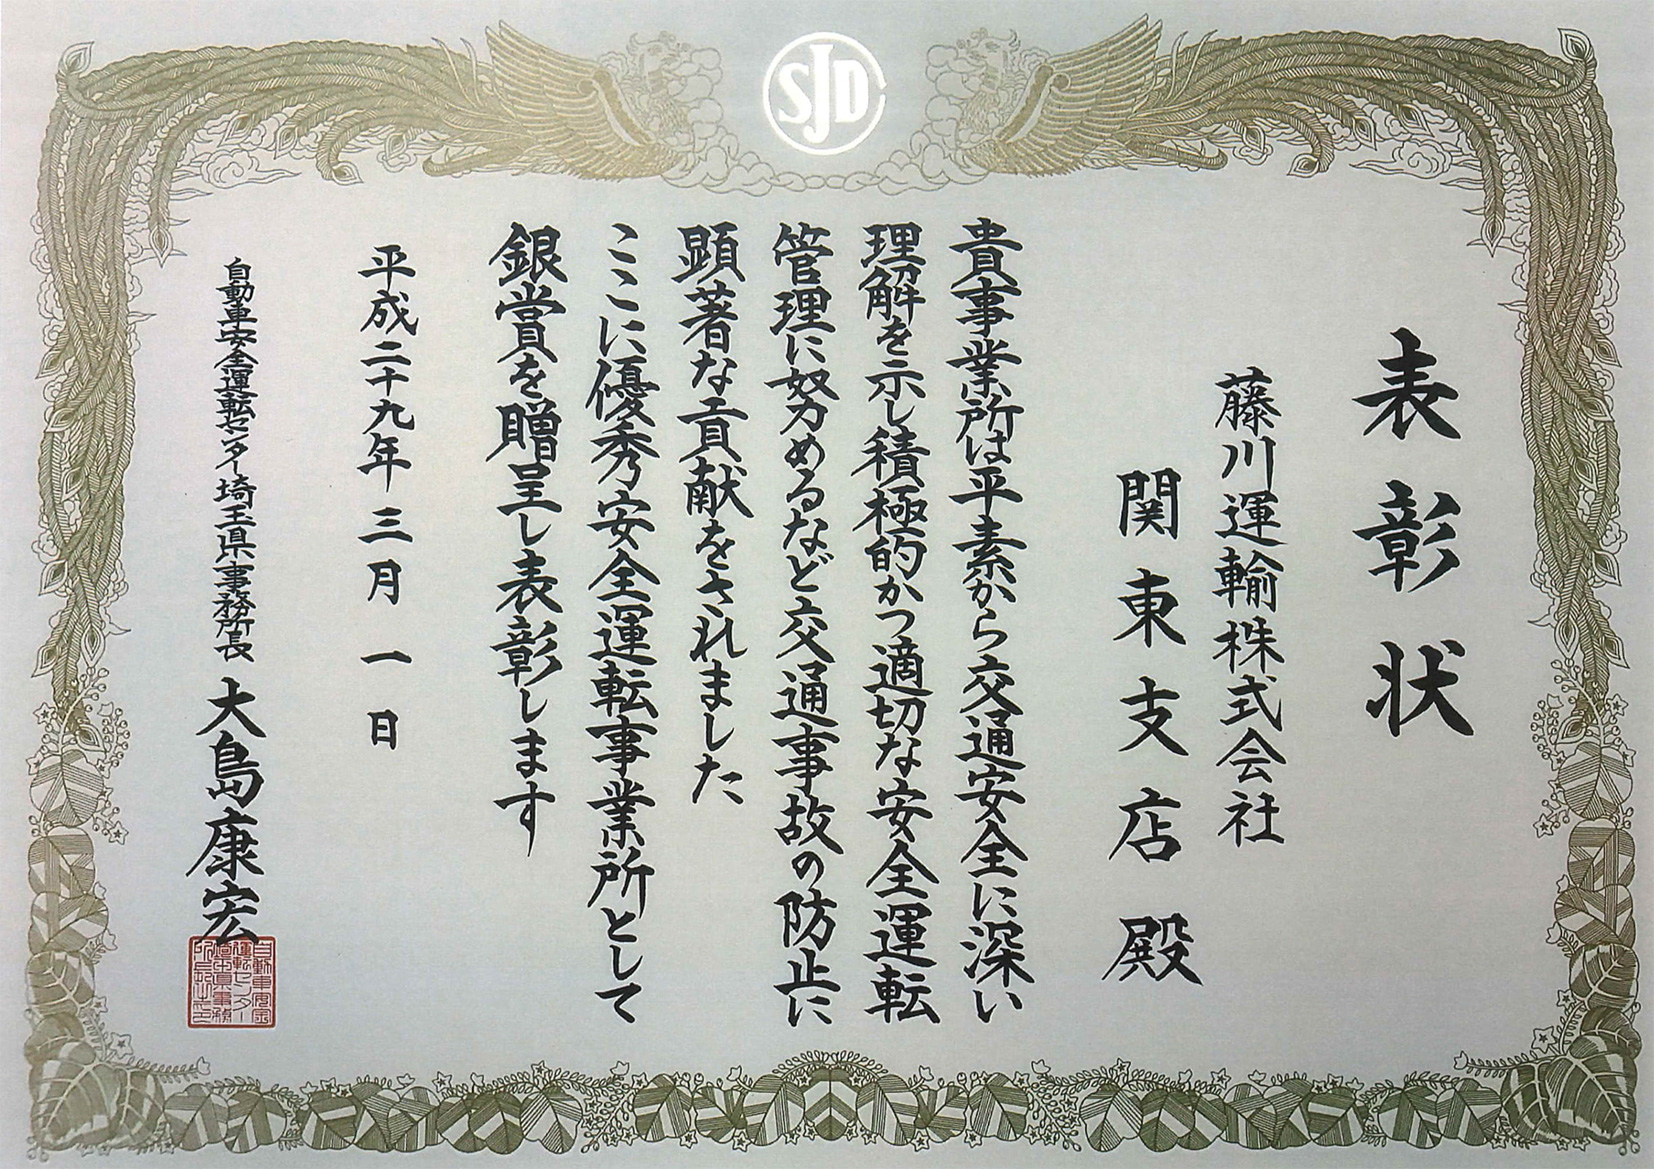 SJDC
表彰状
藤川運輸株式会社
関東支店殿
貴事業所は平素から交通安全に深い
理解を示し積極的かつ適切な安全運転
管理に努めるなど交通事故の防止に
顕著な貢献をされました
ここに優秀安全運転事業所として
銀賞を贈呈し表彰します
平成二十九年三月一日
自動車安全運転センター埼玉県事務所長 大島康宏